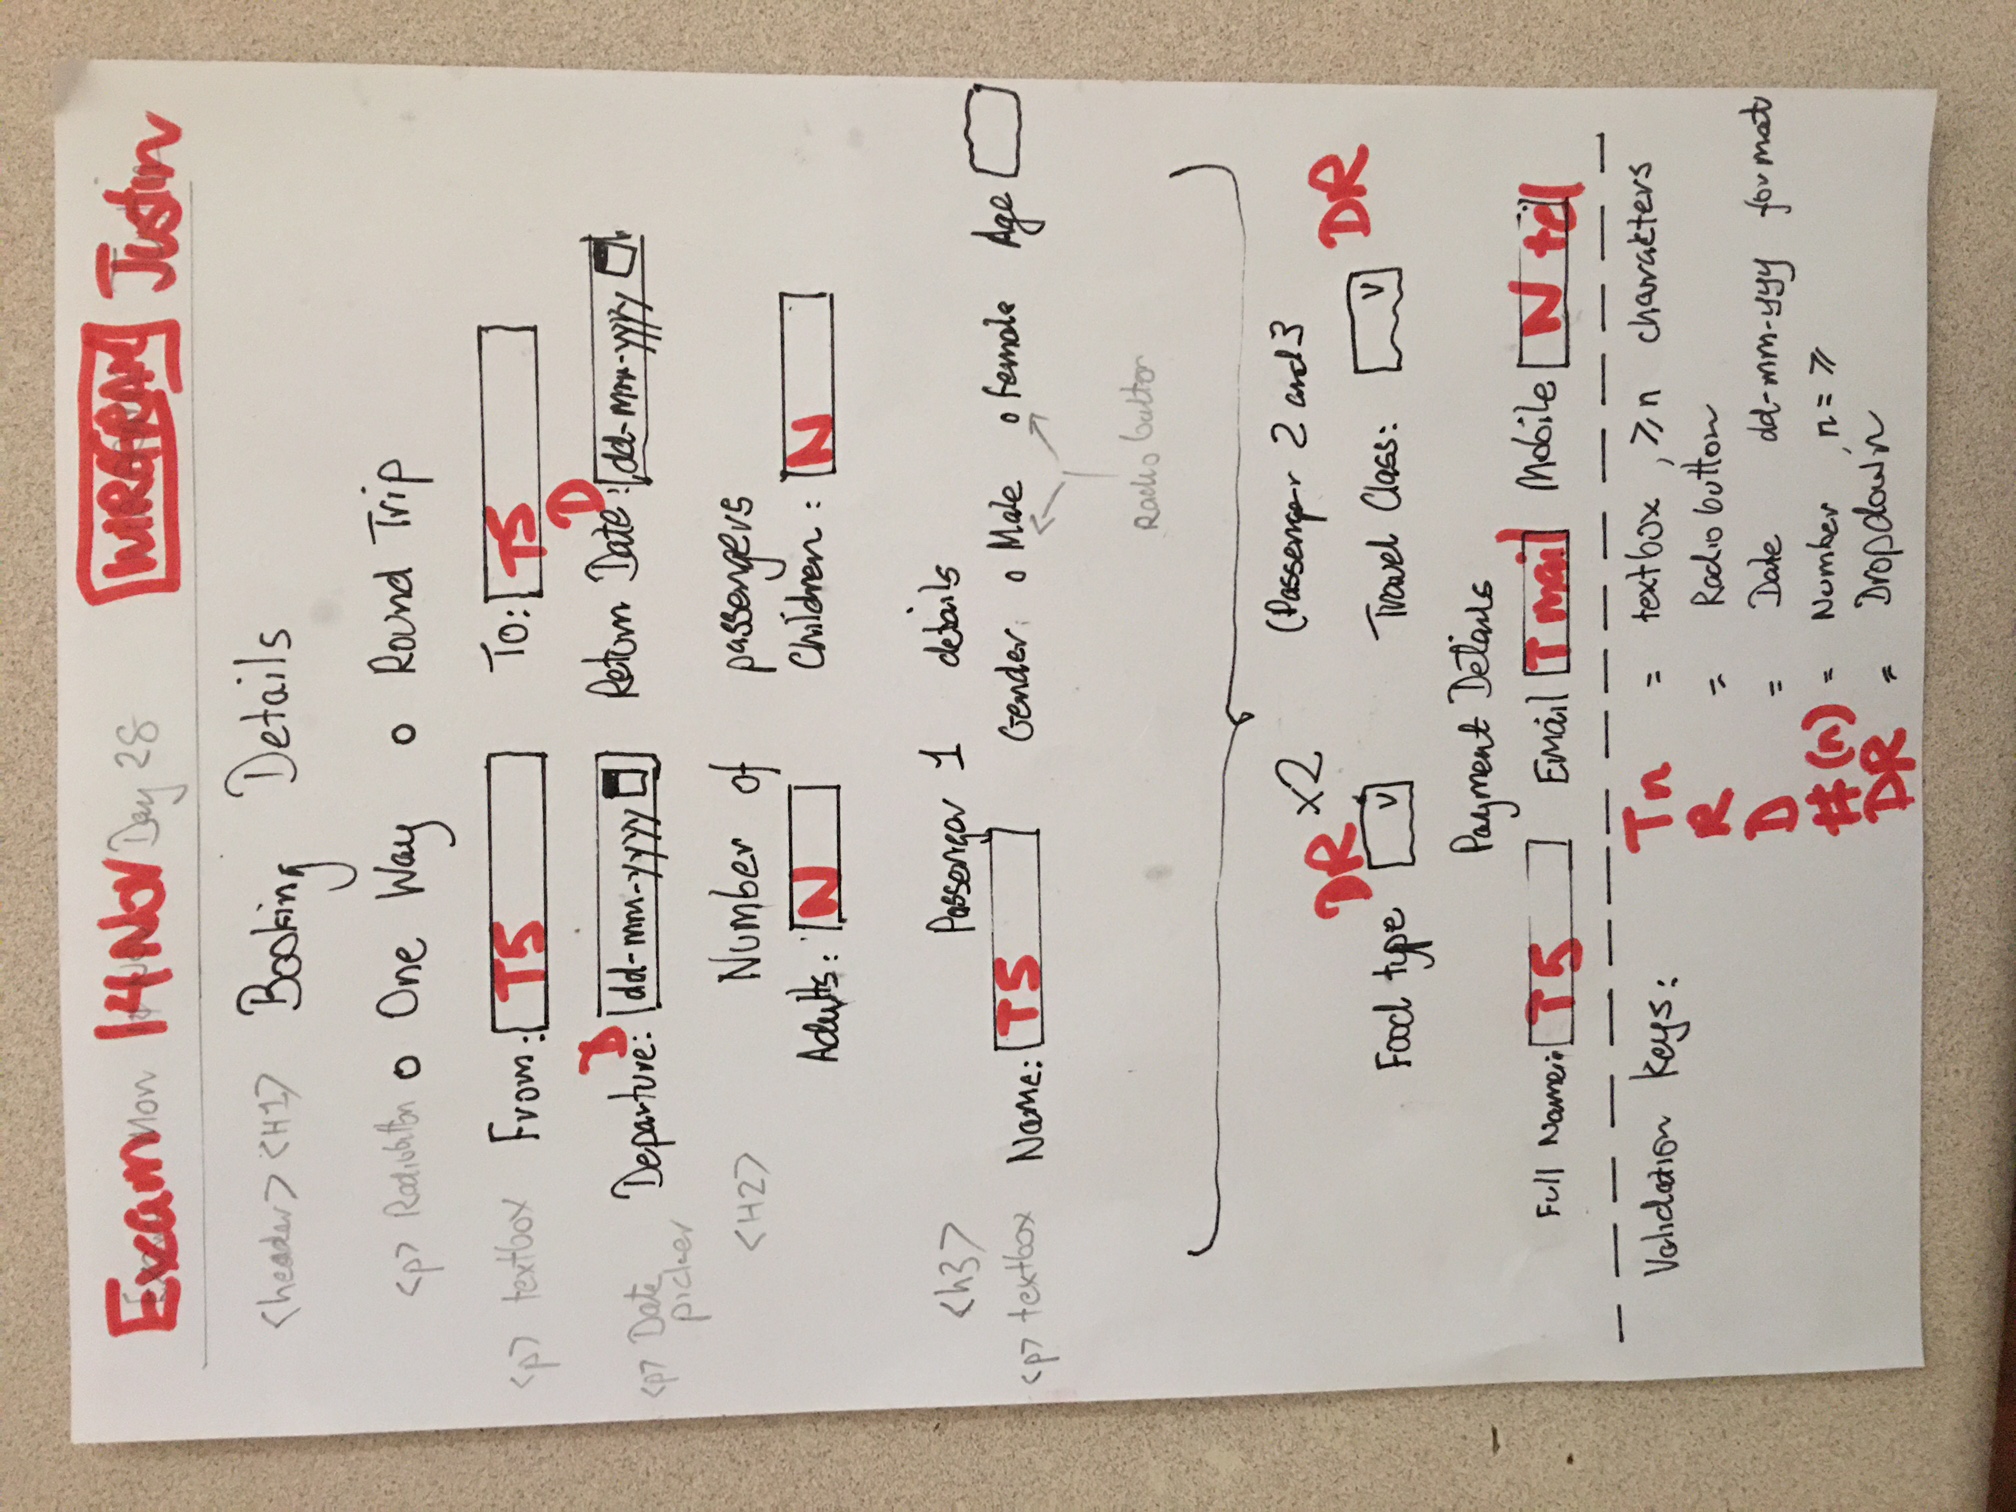 Exam Mon 14 Nov Day 28 WIREFRAM Justin
<header> <H1> Booking Details
<p> Radiobutton o One Way o Round Trip
<p> textbox From: T5 To: T5
<p> Date picker Departure: D dd-mm-yyyy Return Date: D dd-mm-yyyy
<H2> Number of passengers
Adults: N Children: N
<h3> Passenger 1 details
<p> textbox Name: T5 Gender: o Male o Female Age
Radio button
x2 (Passenger 2 and 3
Food type DR v Travel Class: v DR
Payment Details
Full Name: T5 Email T mail Mobile N tel
Validation Keys: Tn = textbox, ≥n characters
R = Radio button
D = Date dd-mm-yyy format
#(n) = Number, n = ≥
DR = Dropdown